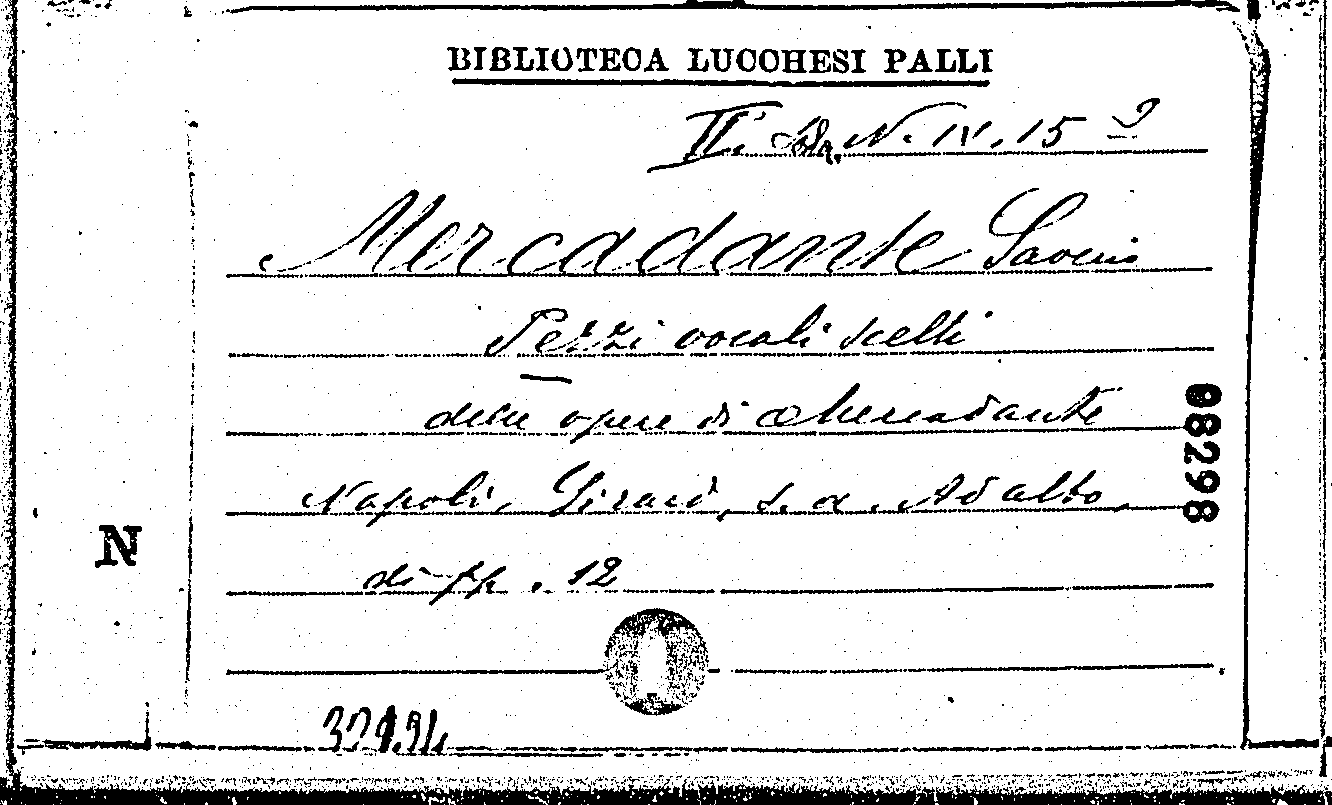 BIBLIOTECA LUCCHESI PALLI
II. Sala N. IV. 15 9
Mercadante Saverio
Pezzi vocali scelti
delle opere di Mercadante
Napoli, Girard, s. a. Ad albo,
di pp. 12
N
08298